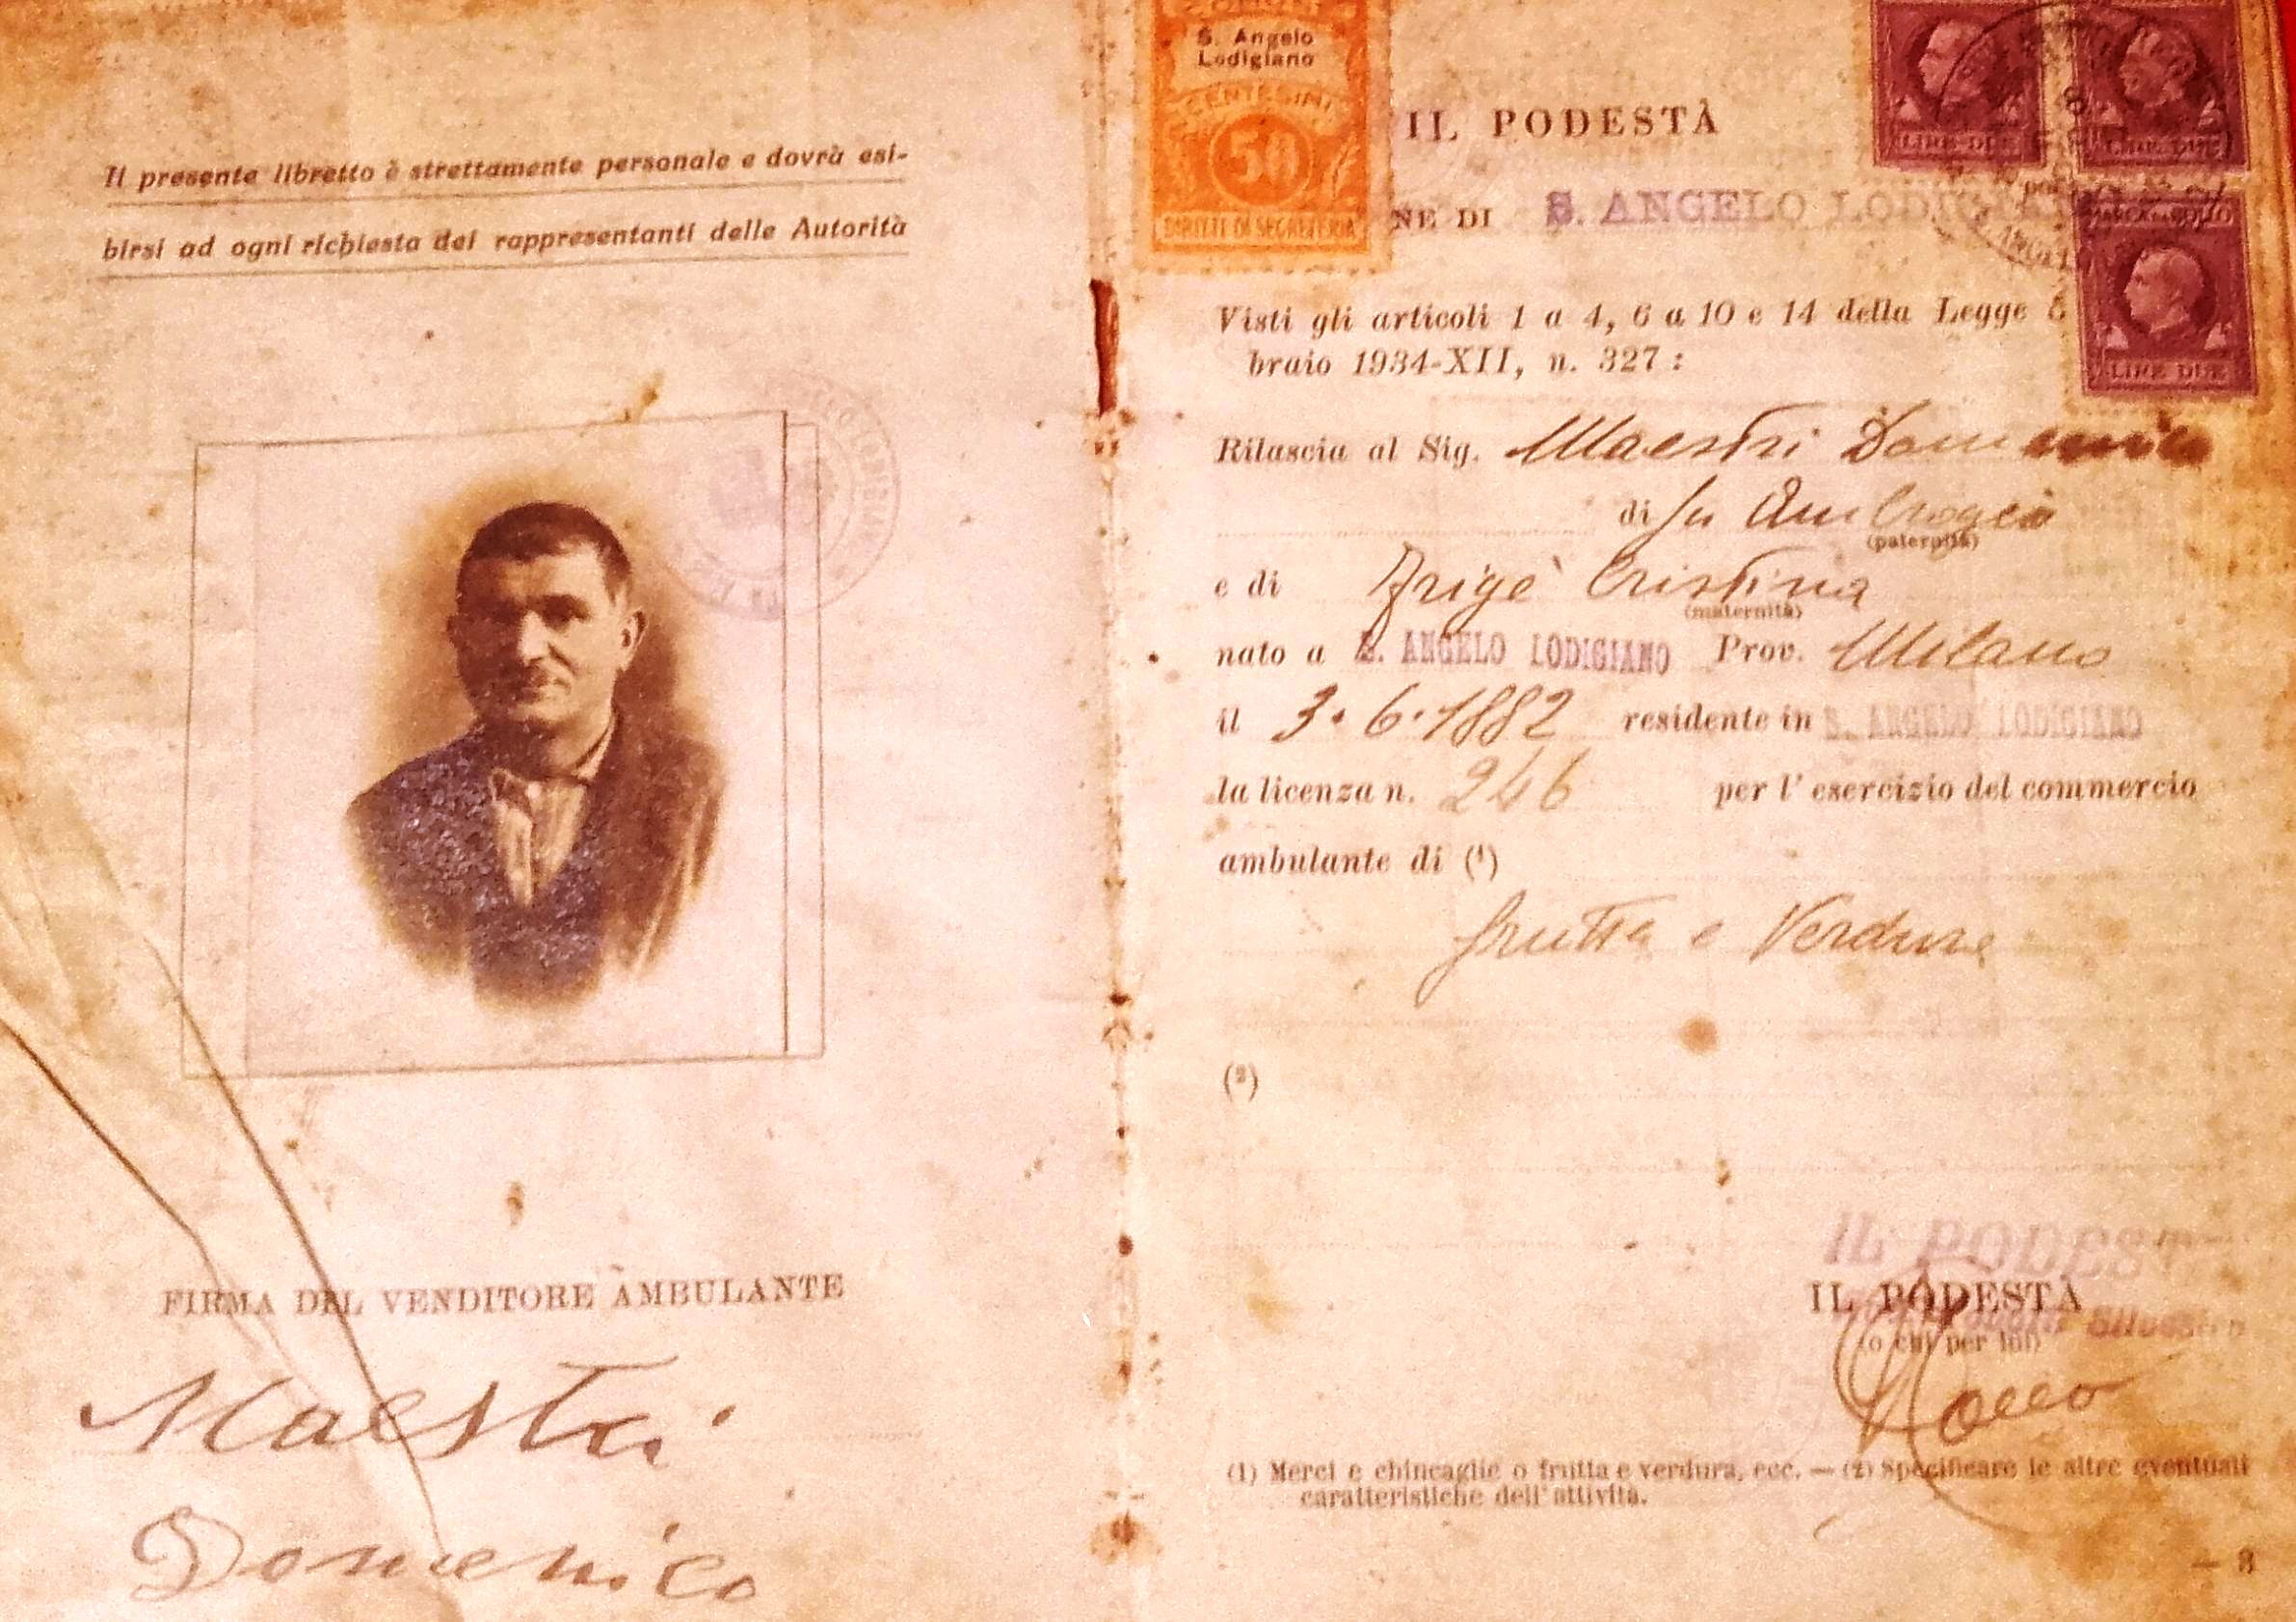 Il presente libretto è strettamente personale e dovrà esi-
birsi ad ogni richiesta dei rappresentanti delle Autorità
FIRMA DEL VENDITORE AMBULANTE
Maestri
Domenico
S. Angelo
Lodigiano
CENTESIMI
50
DIRITTI DI SEGRETERIA
LIRE DUE
LIRE DUE
MARCA DA BOLLO
LIRE DUE
IL PODESTÀ
NE DI S. ANGELO LODIGIANO
Visti gli articoli 1 a 4, 6 a 10 e 14 della Legge 5
braio 1934-XII, n. 327 :
Rilascia al Sig. Maestri Domenico
di fu Ambrogio
(paternità)
e di Frigè Cristina
(maternità)
nato a S. ANGELO LODIGIANO Prov. Milano
il 3.6.1882 residente in S. ANGELO LODIGIANO
la licenza n. 246 per l'esercizio del commercio
ambulante di (1)
frutta e Verdure
(2)
IL PODESTÀ
IL PODESTÀ
(o chi per lui)
(1) Merci e chincaglie o frutta e verdura, ecc. — (2) Specificare le altre eventuali
caratteristiche dell'attività.
— 3